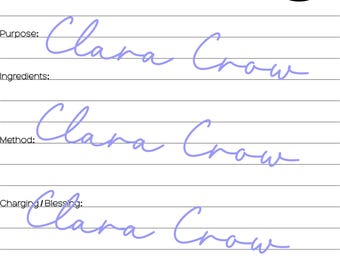 Purpose:
Clara Crow
Ingredients:
Clara Crow
Method:
Charging/Blessing:
Clara Crow